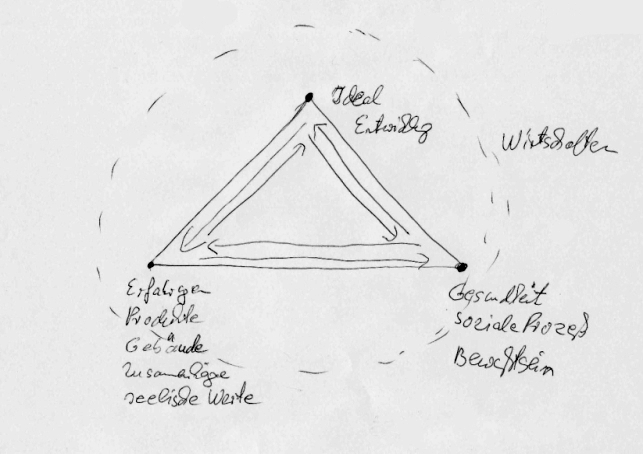 Ideal
Entwicklg
Wirtschaften
Erfahrgen
Produkte
Gebäude
Zusamenhäge
seelische Werte
Gesundheit
soziale Prozeß
Bewußtsein